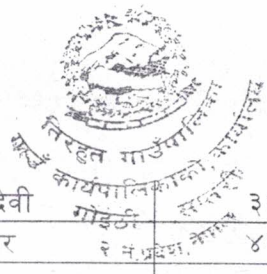 तिरहुत गाउँपालिका
गाउँ कार्यपालिकाको कार्यालय
गोइठी सप्तरी
२ नं.प्रदेश, नेपाल
देवी ३
र ४